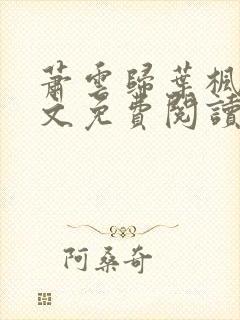 蕭雲歸葉楓
文免費閱讀
阿桑奇